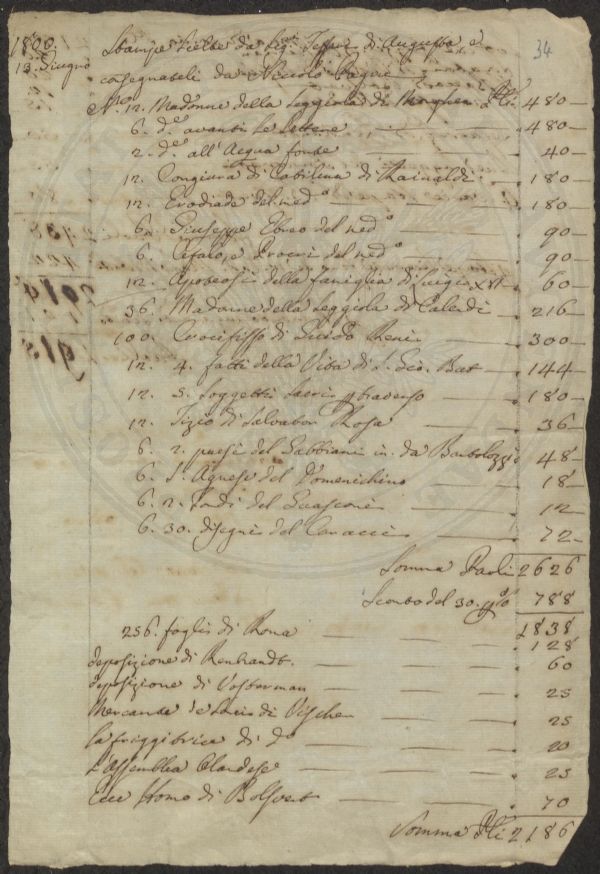 1800. Stampe scelte da Sig.ri Tessari di Augusta, e
13. Giugno consegnateli da Niccolò Pagni
N.o 12. Madonne della Seggiola di Morghen P.li 480
6. d.e avanti le lettere 480
2. d.e all'Acqua forte 40
12. Congiura di Catilina di Rainaldi 180
12. Erodiade del med.o 180
6. Giuseppe Ebreo del med.o 90
6. Cefalo, e Procri del med.o 90
12. Apoteosi della famiglia di Luigi XVI 60
36. Madonne della Seggiola di Calendi 216
100. Crocifisso di Guido Reni 300
12. 4. fatti della Vita di S. Gio. Bat 144
12. 5. Soggetti Sacri 180
12. Tizio di Salvator Rosa 36
6. 2. paesi del Gabbiani in. da Bartolozzi 48
6. S. Agnese del Domenichino 18
6. 2. Tondi del 12
6. 30. disegni del Caracci 72
Somma Paoli 2626
Sconto del 30. p% 788
1838
256. foglis di Roma 128
deposizione di Renbrandt. 60
deposizione di Vosterman 25
Mercante di Vischer 25
la friggitrice di d.o 20
L'Assemblea Olandese 25
Ecce Homo di Bolsvert 70
Somma P.li 2186
34